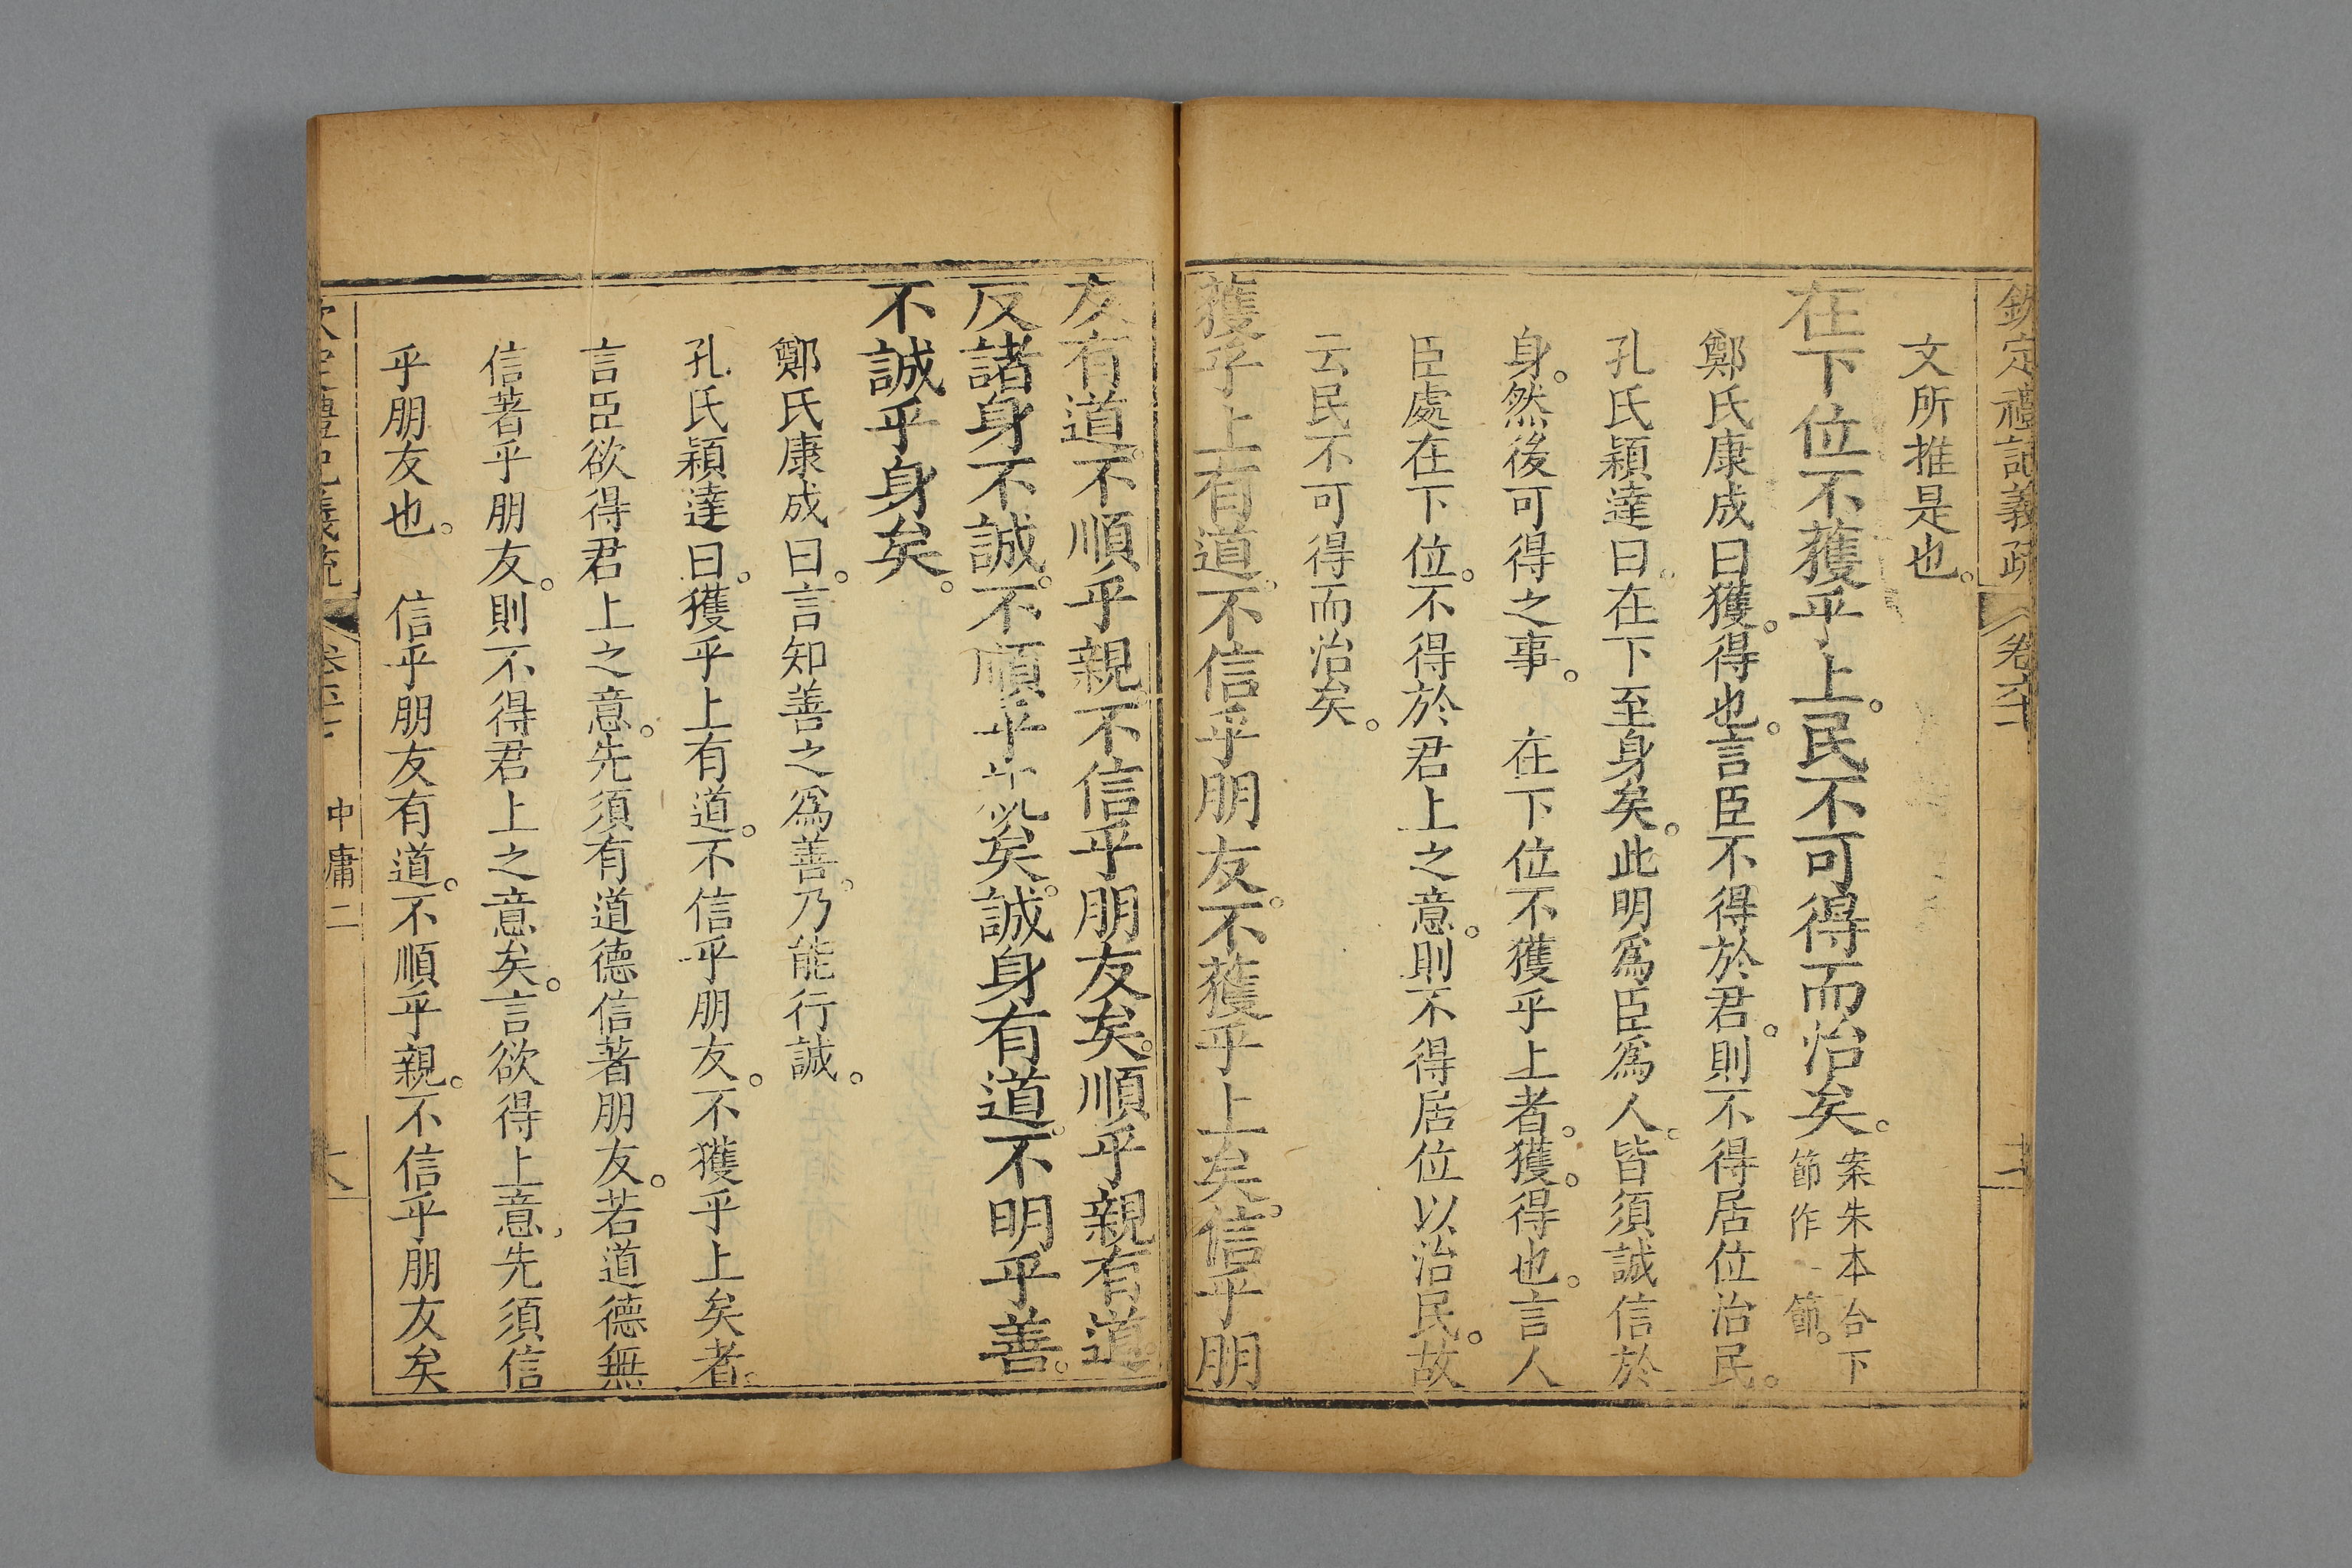 欽定禮記義疏 卷六十
文所推是也。
在下位不獲乎上。民不可得而治矣。案朱本合下
節作一節。
鄭氏康成曰獲。得也。言臣不得於君。則不得居位治民。
孔氏穎達曰。在下至身矣。此明爲臣爲人。皆須誠信於
身。然後可得之事。 在下位不獲乎上者。獲。得也。言人
臣處在下位。不得於君上之意。則不得居位以治民。故
云民不可得而治矣。
獲乎上有道。不信乎朋友。不獲乎上矣。信乎朋
友有道。不順乎親。不信乎朋友矣。順乎親有道。
反諸身不誠。不順乎矣。誠身有道。不明乎善。
不誠乎身矣。
鄭氏康成曰。言知善之爲善。乃能行誠。
孔氏穎達曰。獲乎上有道。不信乎朋友。不獲乎上矣者。
言臣欲得君上之意。先須有道德信著朋友。若道德無
信著乎朋友。則不得君上之意矣。言欲得上意。先須信
乎朋友也。 信乎朋友有道。不順乎親。不信乎朋友矣
中庸二